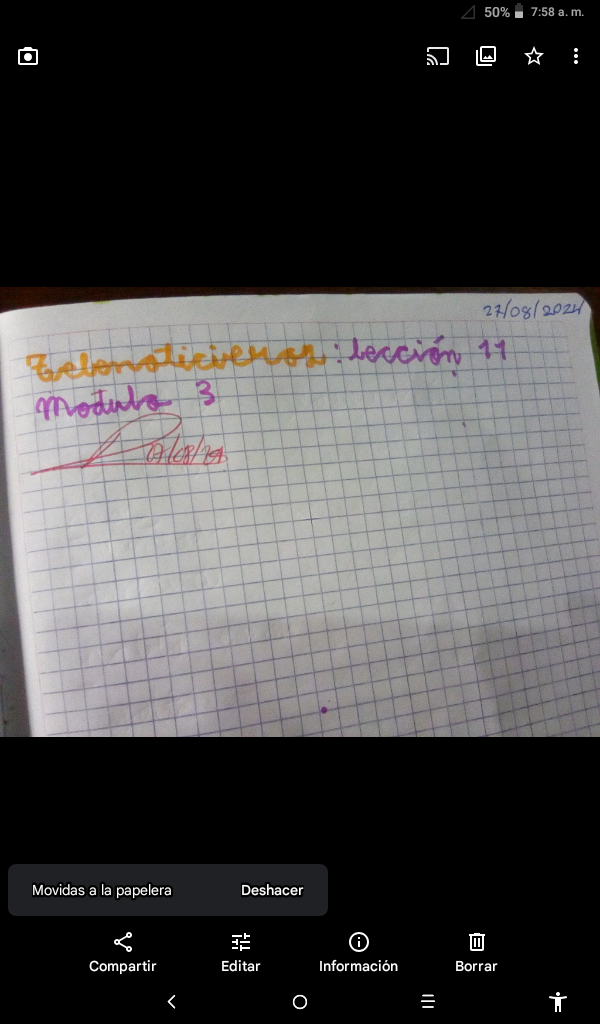 50% 7:58 a. m.
27/08/2024
Telenoticieros: Lección 11
Modulo 3
Movidas a la papelera Deshacer
Compartir Editar Información Borrar